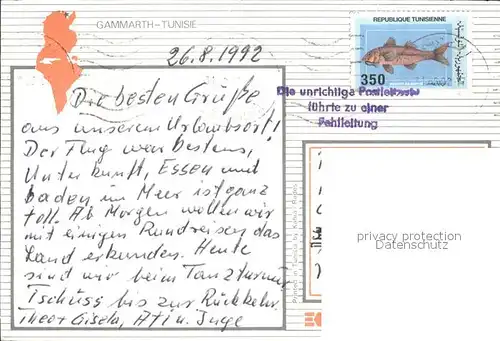 GAMMARTH-TUNISIE
26.8.1992
REPUBLIQUE TUNISIENNE
350
Die unrichtige
führte zu einer
Fehlleitung
Die besten Grüße
aus unserem Urlaubsort!
Der Flug war bestens,
Unterkunft, Essen und
baden im Meer ist ganz
toll. Ab Morgen wollen wir
mit einigen Rundreisen das
Land erkunden. Heute
sind wir beim Tanzturnier
Tschüss bis zur Rückkehr.
Theo + Gisela, Ati u. Inge
privacy protection
Datenschutz
Printed in Tunisia by